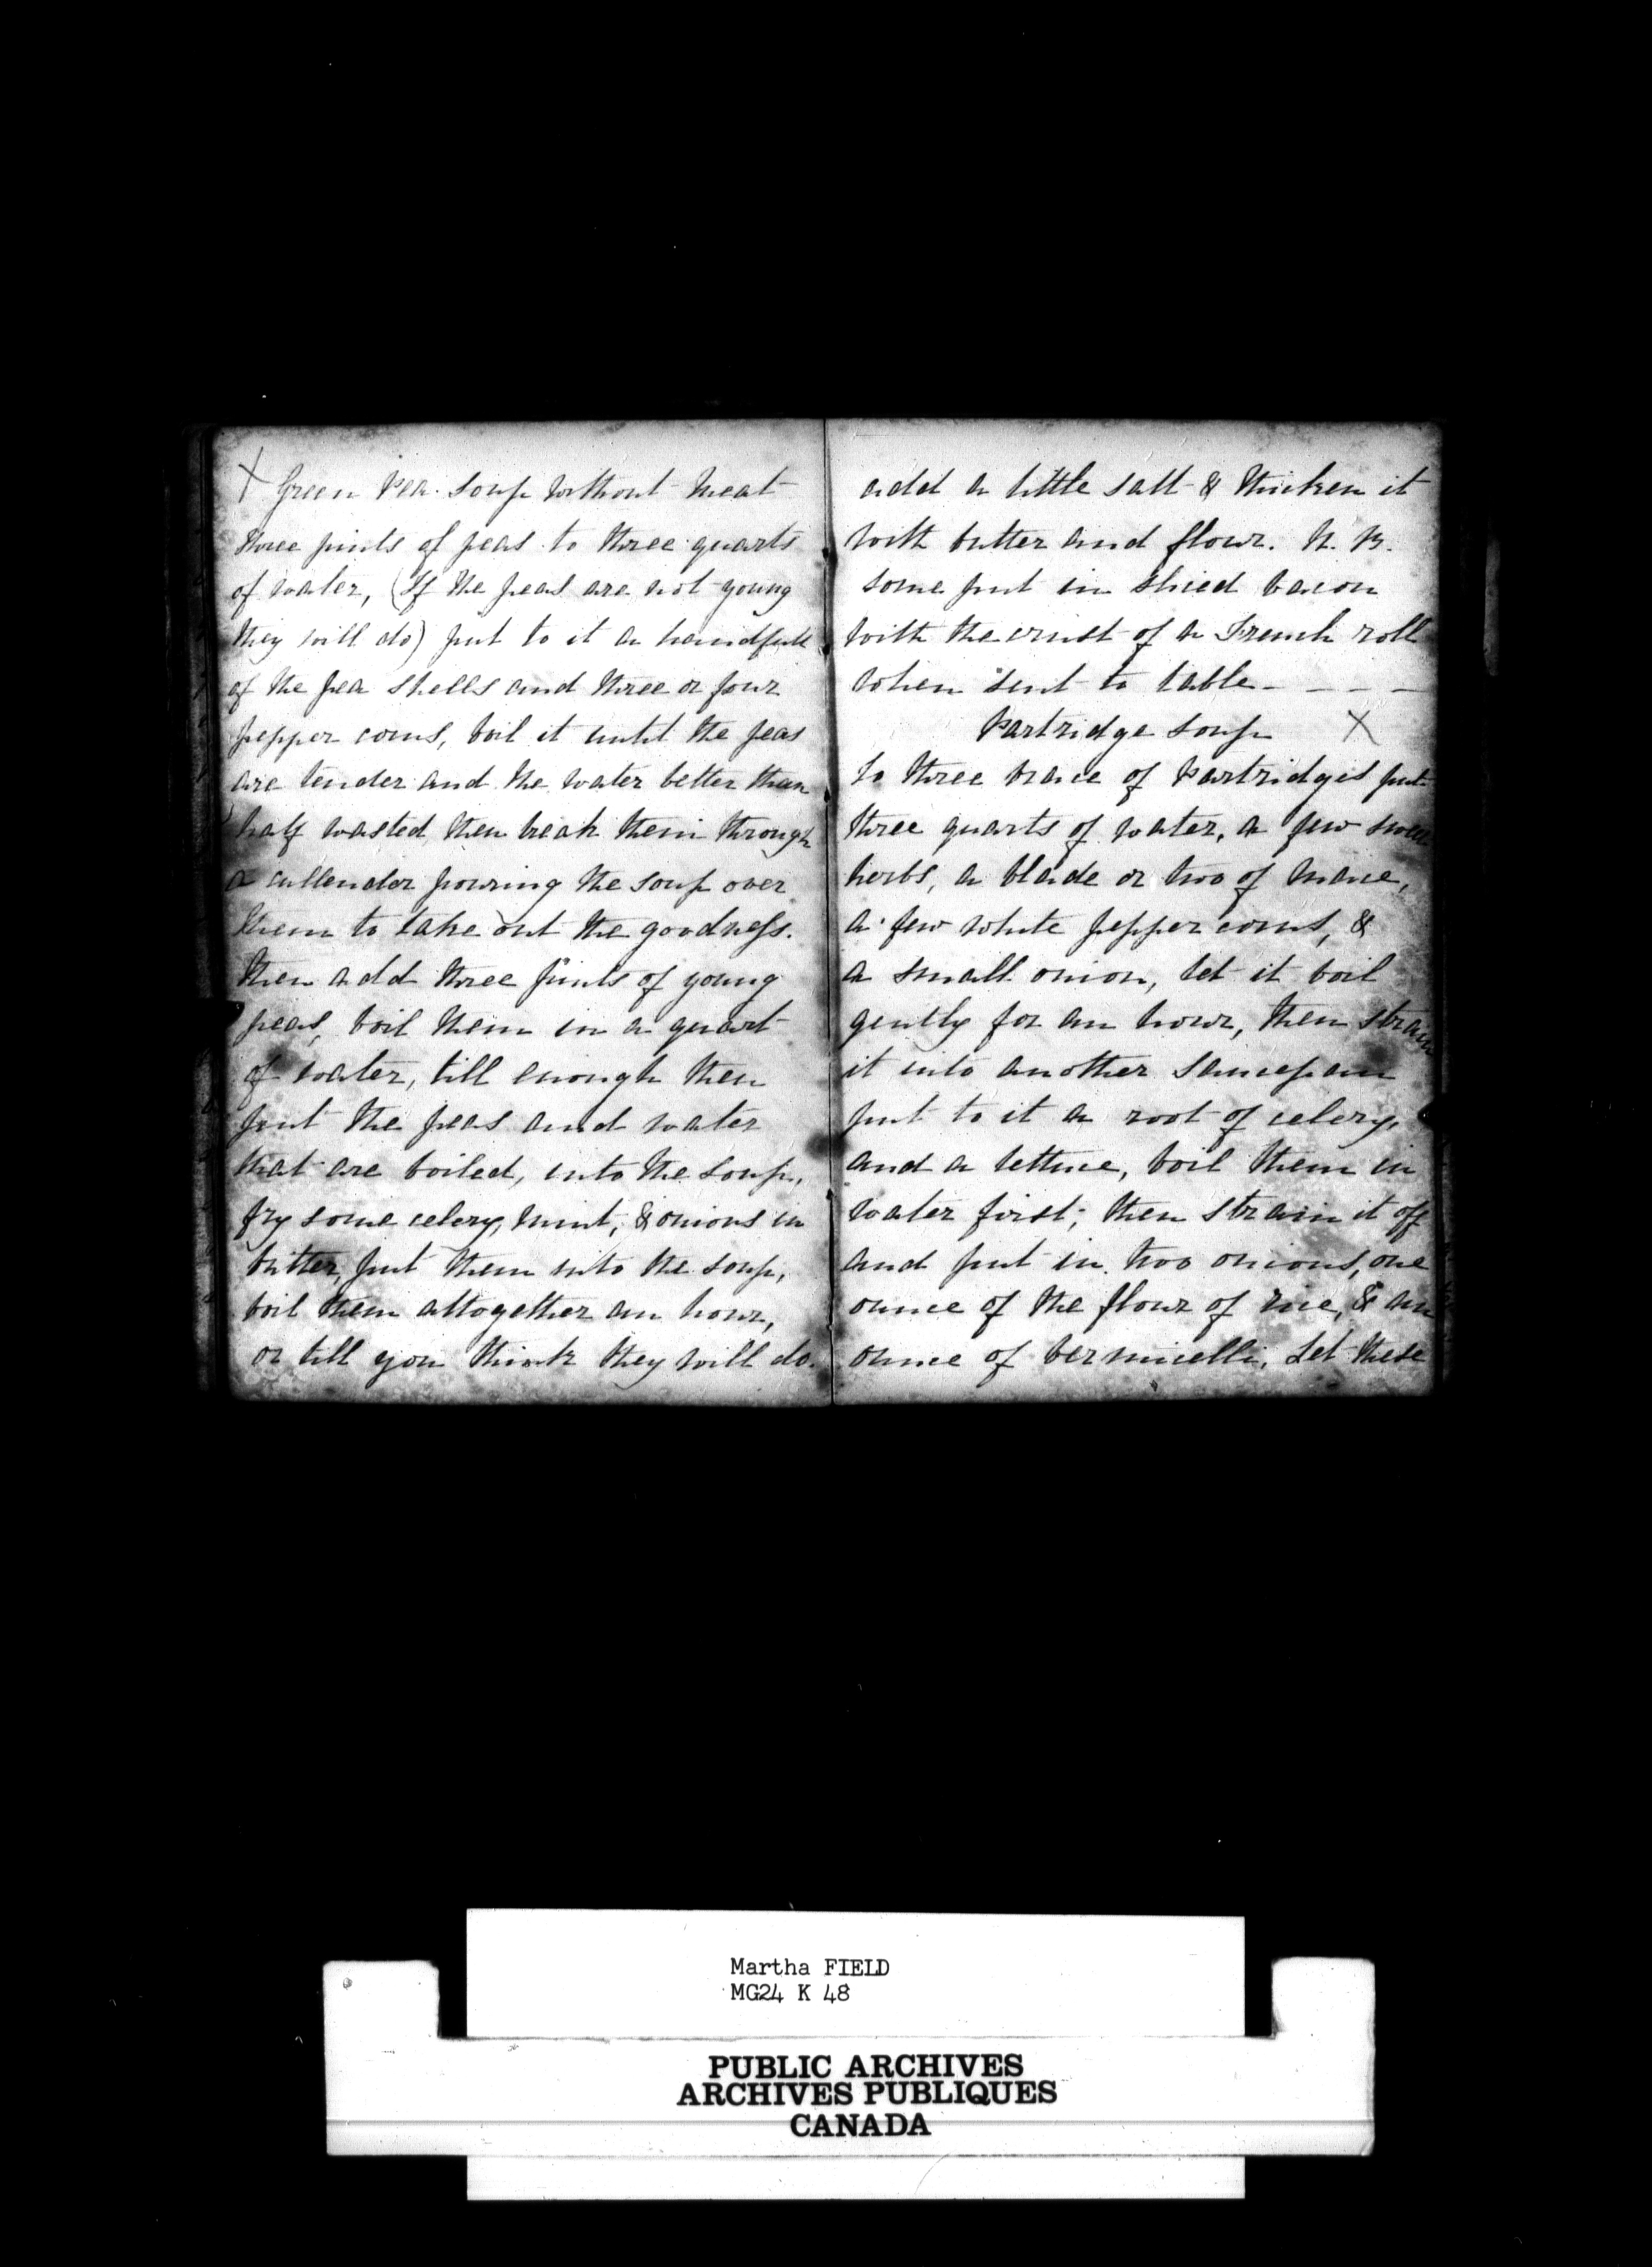 X Green Pea Soup without Meat
three pints of peas to three quarts
of water, (If the peas are not young
they will do) put to it a handfull
of the pea shells and three or four
pepper corns, boil it until the peas
are tender and the water better than
half wasted, then break them through
a cullender pouring the soup over
them to take out the goodness.
then add three pints of young
peas, boil them in a quart
of water, till enough then
put the peas and water
that are boiled, into the soup,
fry some celery, mint, & onions in
butter, put them into the soup,
boil them altogether an hour,
or till you think they will do.
add a little salt & thicken it
with butter and flour. N. B.
some put in sliced bacon
with the crust of a French roll
when sent to table - - - -
Partridge soup X
to three brace of Partridges put
three quarts of water, a few sweet
herbs, a blade or two of mace,
a few white pepper corns, &
a small onion, let it boil
gently for an hour, then strain
it into another saucepan
put to it a root of celery,
and a lettuce, boil them in
water first; then strain it off
and put in two onions, one
ounce of the flour of rice, & an
ounce of vermicelli, Let these
Martha FIELD
MG24 K 48
PUBLIC ARCHIVES
ARCHIVES PUBLIQUES
CANADA